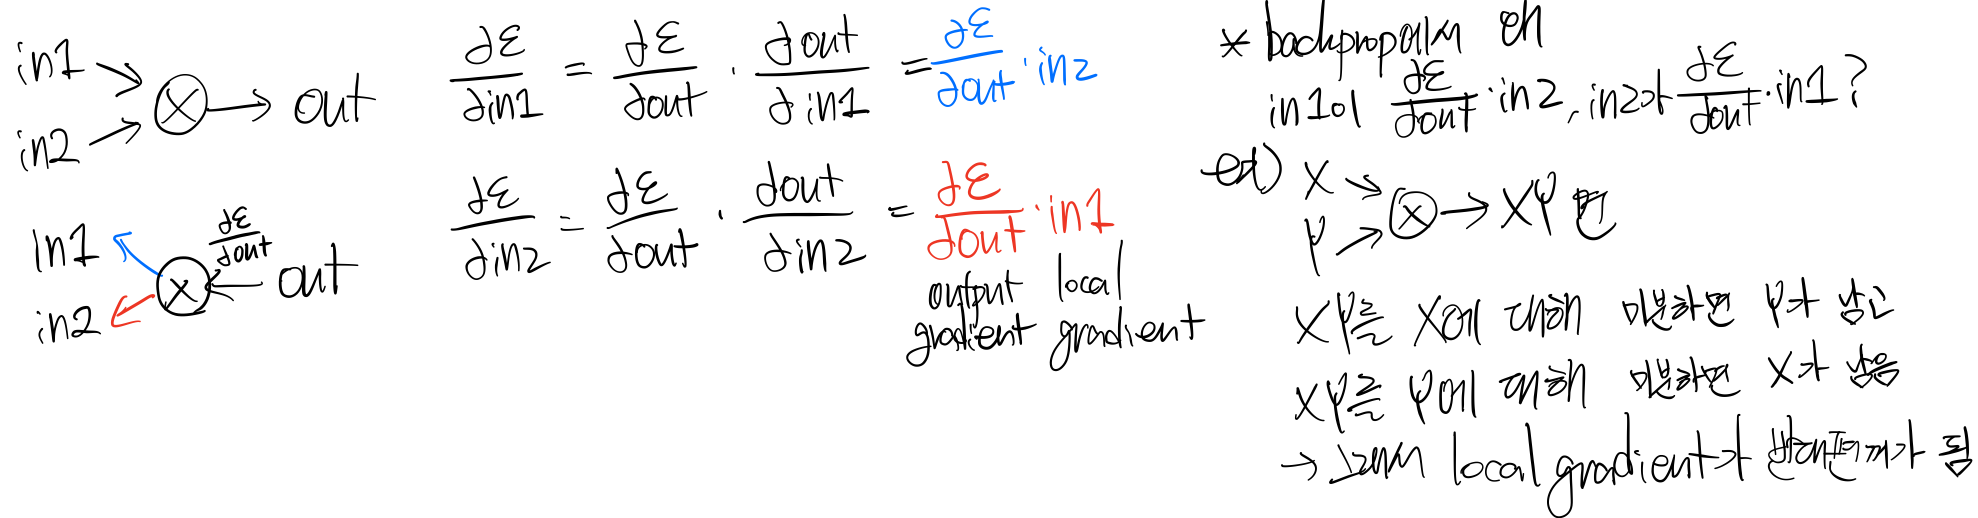 in1
in2
⊗ → out
in1
in2
∂ε/∂out
out
∂ε/∂in1 = ∂ε/∂out · ∂out/∂in1 = ∂ε/∂out · in2
∂ε/∂in2 = ∂ε/∂out · ∂out/∂in2 = ∂ε/∂out · in1
output local
gradient gradient
* backprop에서 왜
in1이 ∂ε/∂out · in2, in2가 ∂ε/∂out · in1?
ex) X
Y
⊗ → XY 면
XY를 X에 대해 미분하면 Y가 남고
XY를 Y에 대해 미분하면 X가 남음
→ 그래서 local gradient가 반대편꺼가 됨